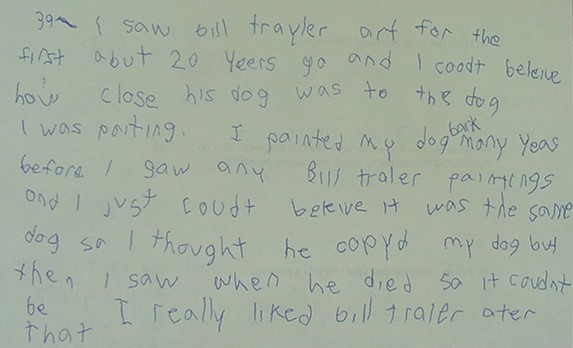 39 I saw bill trayler art for the
first abut 20 Yeers go and I coodt beleive
how close his dog was to the dog
I was paiting. I painted my dog bark many yeas
before I saw any Bill traler paintings
and I just coudt beleive it was the same
dog so I thought he copyd my dog but
then I saw when he died so it coudnt
be I really liked bill traler ater
that